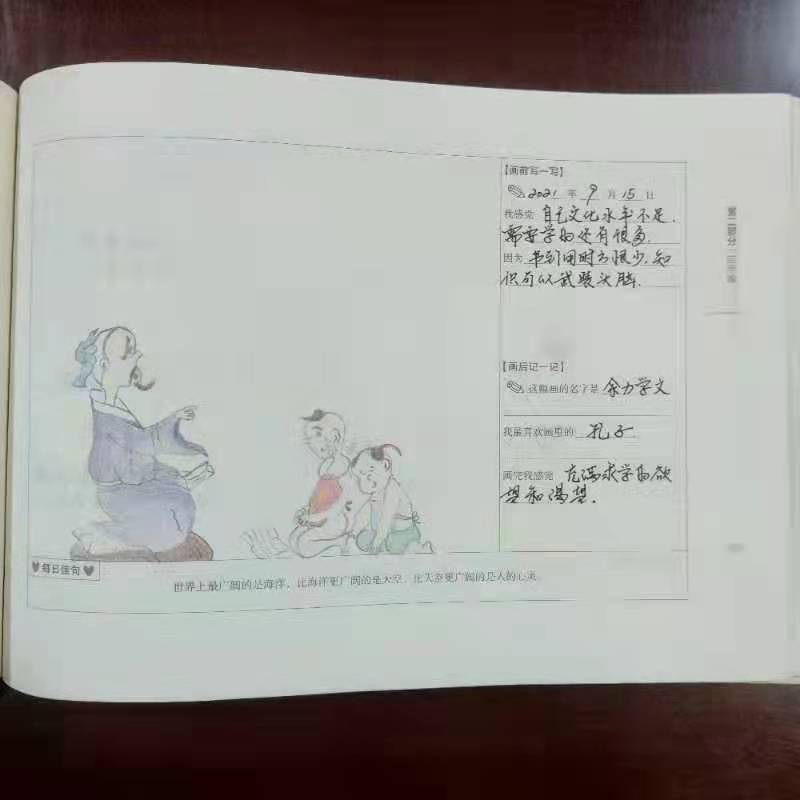 【画前写一写】
2021 年 9 月 15 日
我感觉 自己文化水平不足.
需要学的还有很多.
因为 书到用时方恨少.知
识可以武装头脑.
【画后记一记】
这幅画的名字是 余力学文
我最喜欢画里的 孔子
画完我感觉 充满求学的欲
望和渴望.
第二部分
每日佳句
世界上最广阔的是海洋，比海洋更广阔的是天空，比天空更广阔的是人的心灵。